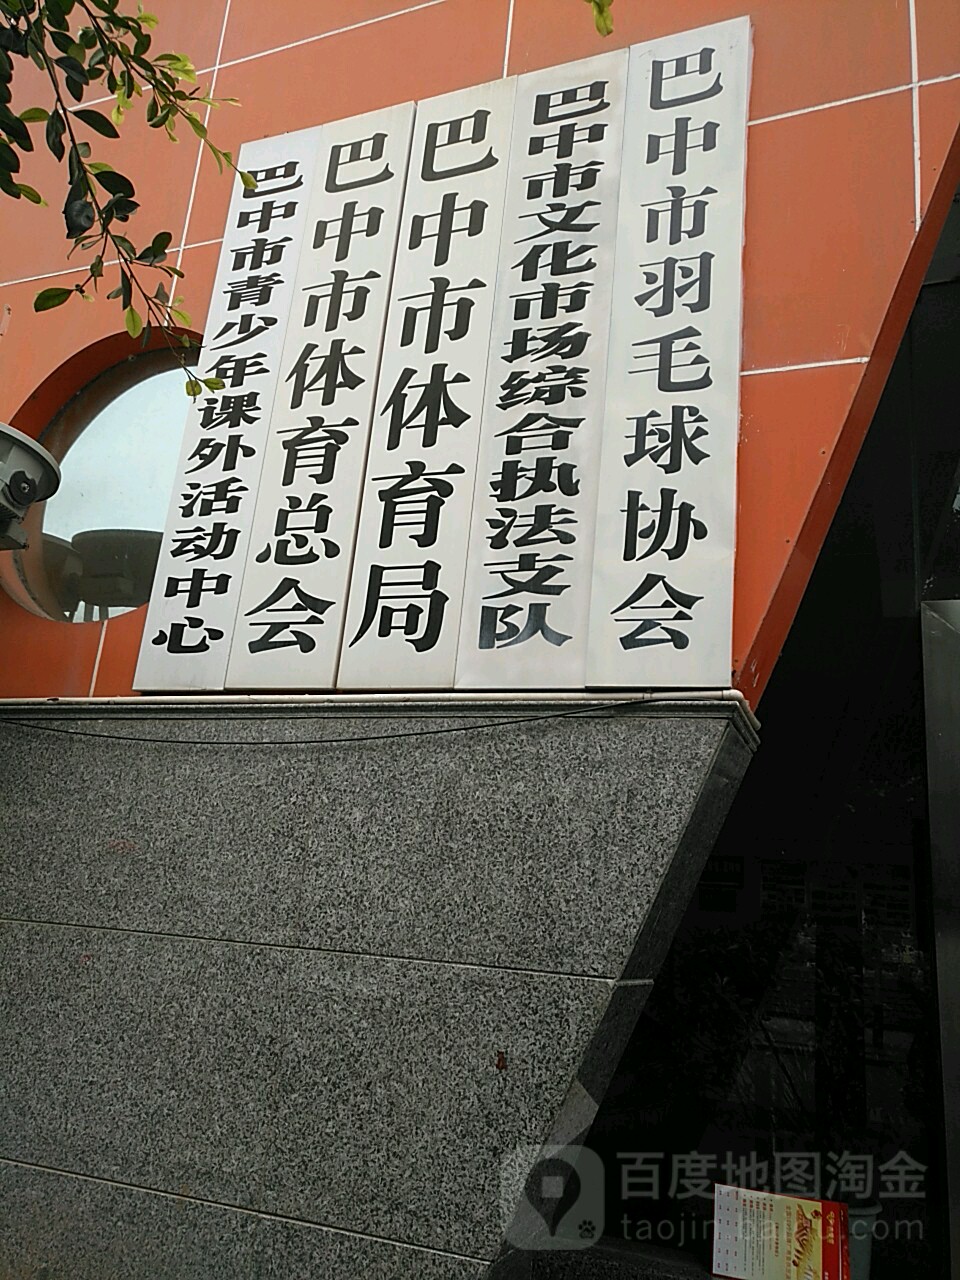 巴中市青少年课外活动中心
巴中市体育总会
巴中市体育局
巴中市文化市场综合执法支队
巴中市羽毛球协会
百度地图淘金
taojin.baidu.com